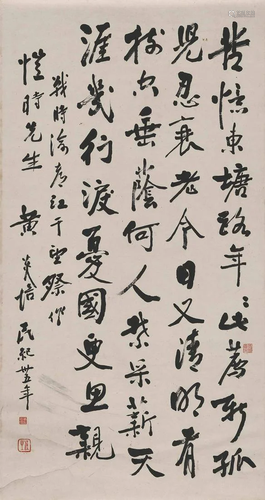 苦憶東塘路年々此薦新孤
兒忍衰老今日又清明有
樹垂蔭何人禁采薪天
涯幾行淚憂國更思親
戰時渝江干望祭作
愷時先生 黃炎培 民紀卅五年